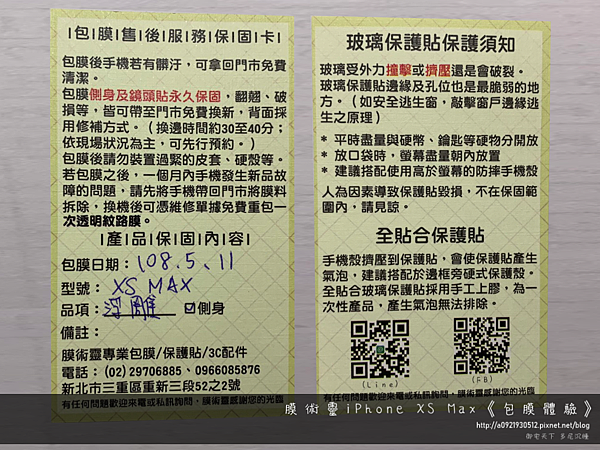 包膜售後服務保固卡
包膜後手機若有髒汙，可拿回門市免費
清潔。
包膜側身及鏡頭貼永久保固，翻翹、破
損等，皆可帶至門市免費換新，背面採
用修補方式。（換邊時間約30至40分；
依現場狀況為主，可先行預約。）
包膜後請勿裝置過緊的皮套、硬殼等。
若包膜之後，一個月內手機發生新品故
障的問題，請先將手機帶回門市將膜料
拆除，換機後可憑維修單據免費重包一
次透明紋路膜。
產品保固內容
包膜日期：108.5.11
型號：XS MAX
品項：浮雕 ☑側身
備註：
膜術靈專業包膜/保護貼/3C配件
電話：(02) 29706885、0966085876
新北市三重區重新三段52之2號
有任何問題歡迎來電或私訊詢問，膜術靈感謝您的光臨
玻璃保護貼保護須知
玻璃受外力撞擊或擠壓還是會破裂。
玻璃保護貼邊緣及孔位也是最脆弱的地
方。（如安全逃生窗，敲擊窗戶邊緣逃
生之原理）
* 平時盡量與硬幣、鑰匙等硬物分開放
* 放口袋時，螢幕盡量朝內放置
* 建議搭配使用高於螢幕的防摔手機殼
人為因素導致保護貼毀損，不在保固範
圍內，請見諒。
全貼合保護貼
手機殼擠壓到保護貼，會使保護貼產生
氣泡，建議搭配於邊框旁硬式保護殼。
全貼合玻璃保護貼採用手工上膠，為一
次性產品，產生氣泡無法排除。
(Line)
(FB)
有任何問題歡迎來電或私訊詢問，膜術靈感謝您的光臨
膜術靈iPhone XS Max《包膜體驗》
http://a0921930512.pixnet.net/blog
御宅天下 多尾沉睡